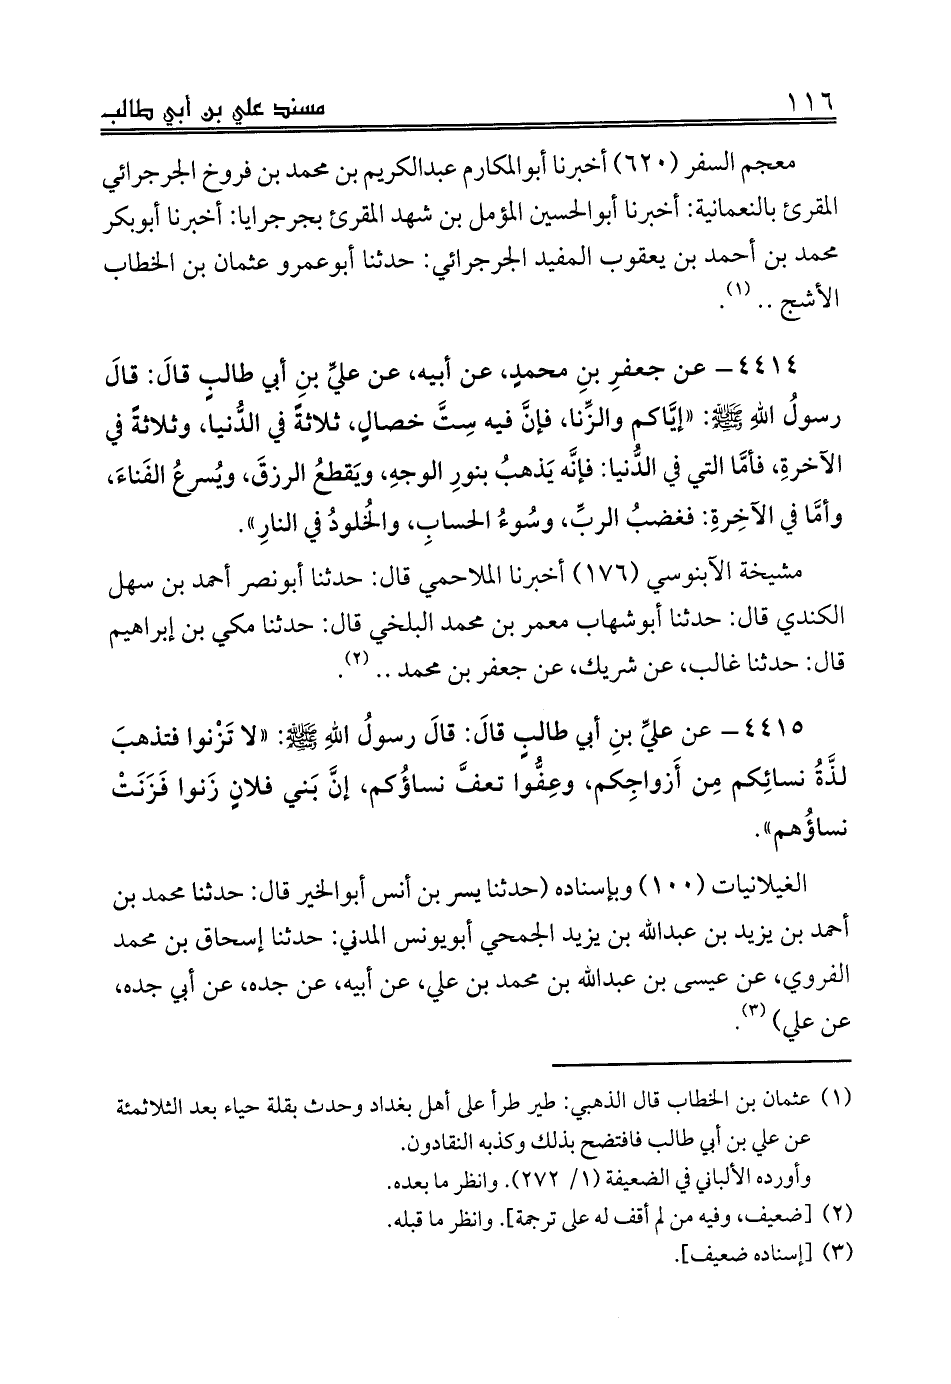 ١١٦ مسند علي بن أبي طالب
معجم السفر (٦٢٠) أخبرنا أبوالمكارم عبدالكريم بن محمد بن فروخ الجرجرائي
المقرئ بالنعمانية: أخبرنا أبوالحسين المؤمل بن شهد المقرئ بجرجرايا: أخبرنا أبوبكر
محمد بن أحمد بن يعقوب المفيد الجرجرائي: حدثنا أبوعمرو عثمان بن الخطاب
الأشج .. (١).
٤٤١٤ – عن جعفرِ بنِ محمدٍ، عن أبيه، عن عليِّ بنِ أبي طالبٍ قالَ: قالَ
رسولُ اللهِ ﷺ: «إيَّاكم والزِّنا، فإنَّ فيه ستَّ خصالٍ، ثلاثةً في الدُّنيا، وثلاثةً في
الآخرةِ، فأمَّا التي في الدُّنيا: فإنَّه يَذهبُ بنورِ الوجهِ، ويَقطعُ الرزقَ، ويُسرعُ الفَناءَ،
وأمَّا في الآخِرةِ: فغضبُ الربِّ، وسُوءُ الحسابِ، والخُلودُ في النارِ».
مشيخة الآبنوسي (١٧٦) أخبرنا الملاحمي قال: حدثنا أبونصر أحمد بن سهل
الكندي قال: حدثنا أبوشهاب معمر بن محمد البلخي قال: حدثنا مكي بن إبراهيم
قال: حدثنا غالب، عن شريك، عن جعفر بن محمد .. (٢).
٤٤١٥ – عن عليِّ بنِ أبي طالبٍ قالَ: قالَ رسولُ اللهِ ﷺ: «لا تَزْنوا فتذهبَ
لذَّةُ نسائِكم مِن أَزواجِكم، وعِفُّوا تعفَّ نساؤُكم، إنَّ بَني فلانٍ زَنوا فَزَنَتْ
نساؤُهم».
الغيلانيات (١٠٠) وبإسناده (حدثنا يسر بن أنس أبوالخير قال: حدثنا محمد بن
أحمد بن يزيد بن عبدالله بن يزيد الجمحي أبويونس المدني: حدثنا إسحاق بن محمد
الفروي، عن عيسى بن عبدالله بن محمد بن علي، عن أبيه، عن جده، عن أبي جده،
عن علي) (٣).
(١) عثمان بن الخطاب قال الذهبي: طير طرأ على أهل بغداد وحدث بقلة حياء بعد الثلاثمئة
عن علي بن أبي طالب فافتضح بذلك وكذبه النقادون.
وأورده الألباني في الضعيفة (١/ ٢٧٢). وانظر ما بعده.
(٢) [ضعيف، وفيه من لم أقف له على ترجمة]. وانظر ما قبله.
(٣) [إسناده ضعيف].